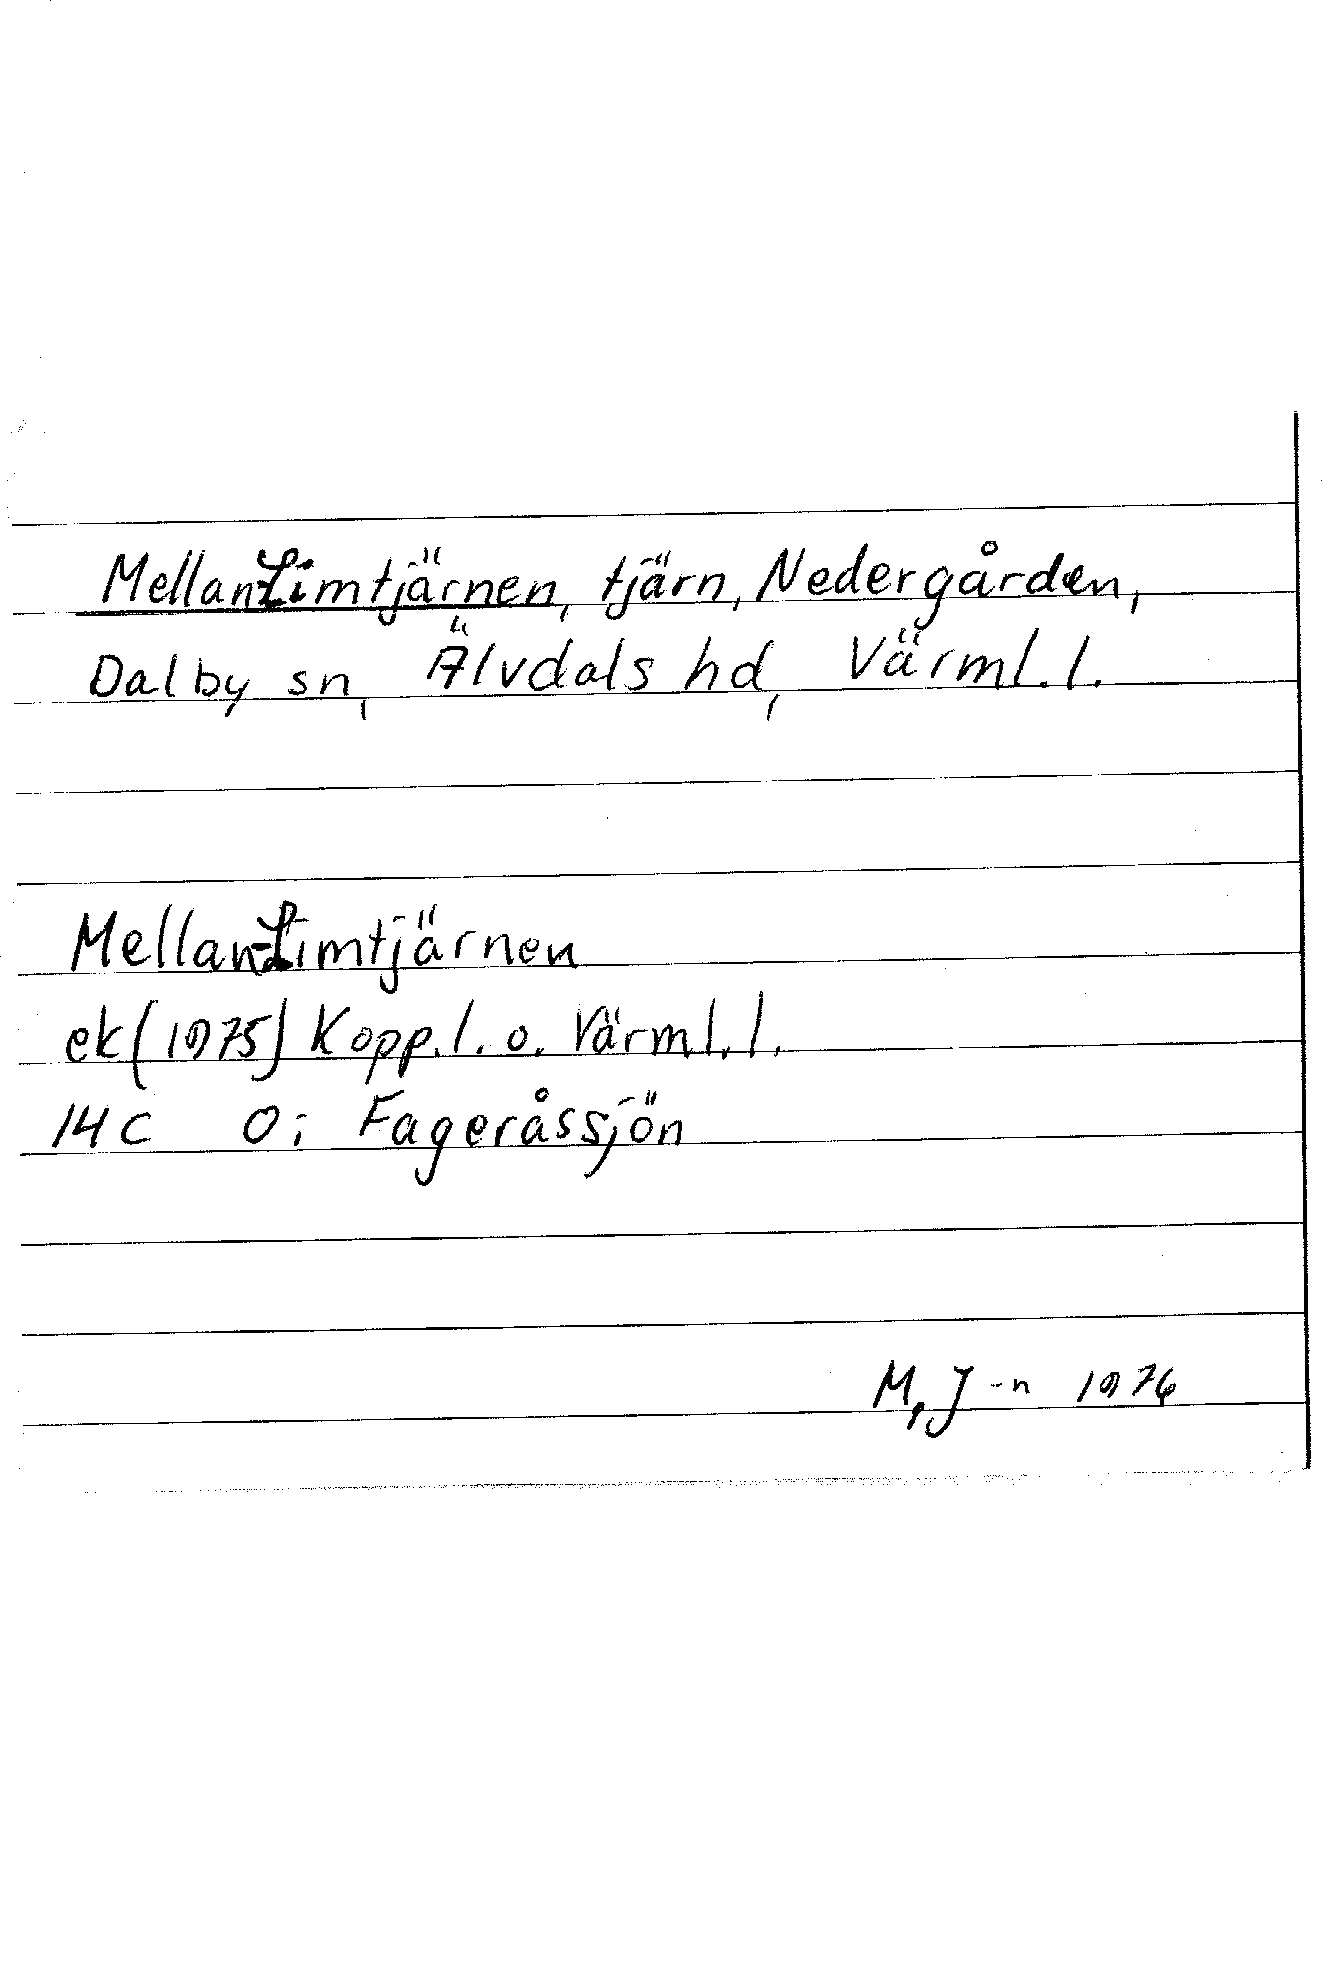 Mellan-Limtjärnen, tjärn, Nedergården,
Dalby sn, Älvdals hd, Värml. l.
Mellan-Limtjärnen
ek (1975) Kopp. l. o. Värml. l.
14 C 0 i Fageråssjön
M, J-n 1976